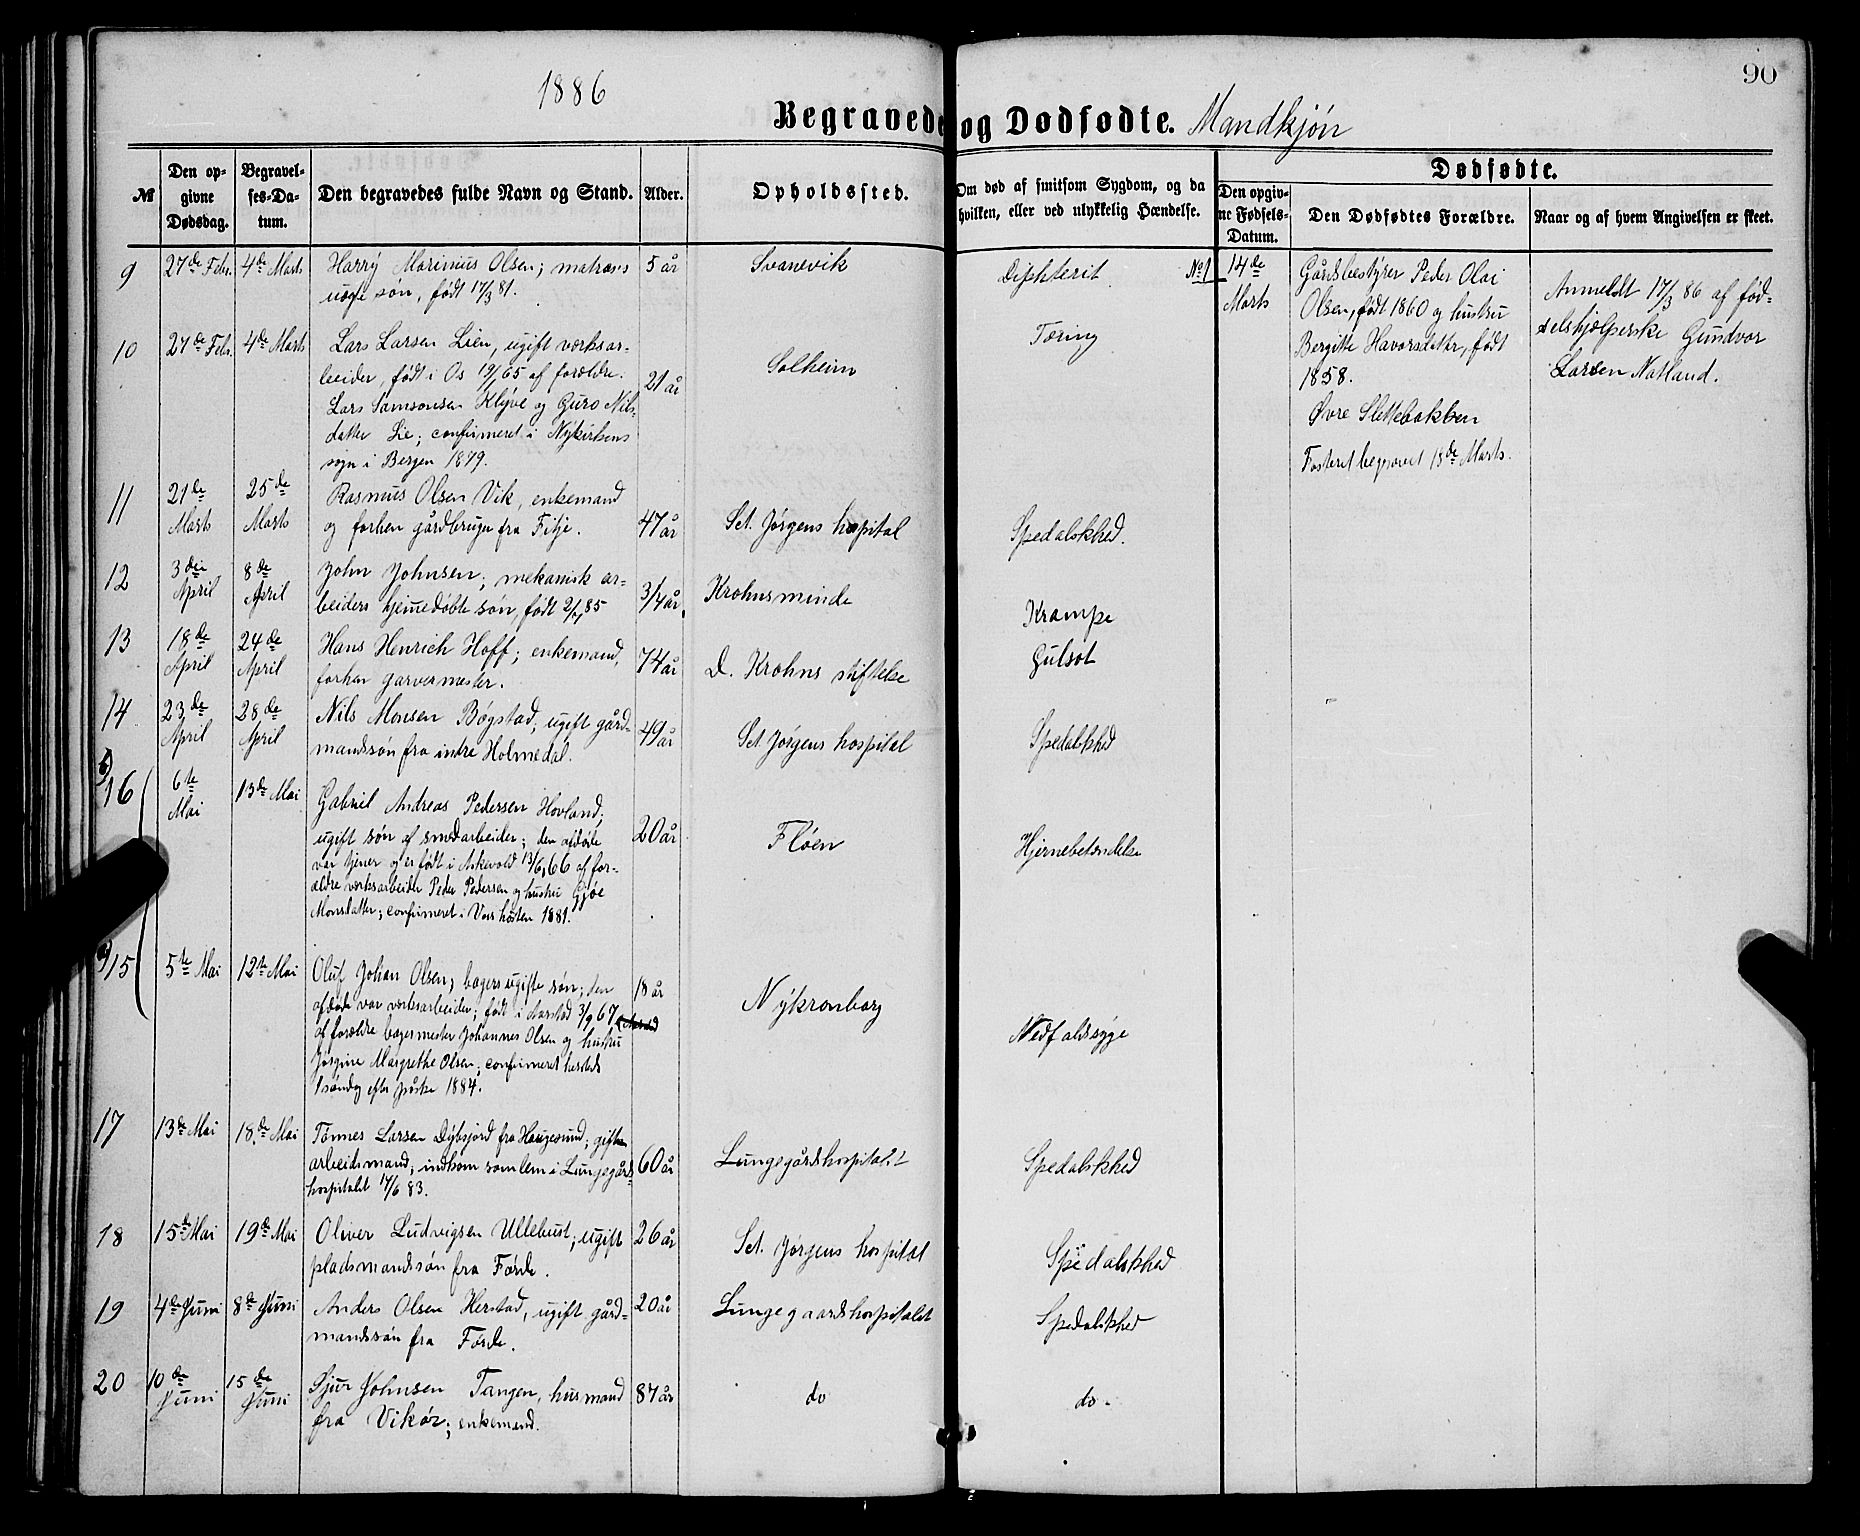 90
1886
Begravede og Dødfødte. Mandkjøn
№
Den op-
givne
Dødsdag.
Begravel-
ses-Da-
tum.
Den begravedes fulde Navn og Stand.
Alder.
Opholdssted.
Om død af smitsom Sygdom, og da
hvilken, eller ved ulykkelig Hændelse.
Dødfødte.
Den opgiv-
ne Fødsels-
Datum.
Den Dødfødtes Forældre.
Naar og af hvem Angivelsen er skeet.
9
27de Febr.
4de Marts
Harry Marinius Olsen; matros
søn, født 17/3 81.
5 år
Svanevik
Diphterit
10
27de Febr.
4de Marts
Lars Larsen Lien, ugift værksar-
beider, født i Os 19/1 65 af forældre.
Lars Samsonsen Kleÿve og Guro Nils-
datter Lie; confirmeret i Nÿkirkens
sogn i Bergen 1879.
21 år
Solheim
Tæring
11
21de
Marts
25de
Marts
Rasmus Olsen Vik, enkemand
og forhen gårdbruger fra Fitje.
47 år
Sct. Jørgens hospital
Spedalskhed.
12
3die
April
8de
April
John Johnsen; mekanisk ar-
beiders hjemedøbte søn, født 2/7 85
3/4 år
Krohnsminde
Krampe
13
18de
April
24de
April
Hans Henrich Hoff; enkemand,
forhen garvermester.
74 år
D. Krohns stiftelse
Gulsot
14
23de
April
28de
April
Nils Monsen Bøgstad, ugift gård-
mandssøn fra indre Holmedal.
49 år
Sct Jørgens hospital
Spedalskhed
16
6te
Mai
13de Mai
Gabriel Andreas Pedersen Hovland;
ugift søn af smedarbeider; den afdøde
var tjener og er født i Askevold 13/6 66 af for-
ældre værksarbeider Peder Pedersen og hustru Gjøe
Monsdatter; confirmeret i Vors høsten 1881.
20 år
Fløen
Hjernebetændelse
15
5te Mai
12te Mai
Oluf Johan Olsen, bagers ugifte søn; den
afdøde var værksarbeider; født i Aarstad 3/9 67
af forældre bagermester Johannes Olsen og hustru
Jørgine Margrethe Olsen; confirmeret hersteds
1 søndag efter påske 1884.
18 år
Nÿkronborg
Nedfaldssyge
17
13de Mai
18de Mai
Tønnes Larsen Dÿbsjord fra Haugesund; gift
arbeidsmand; indkom som lem i Lungegårds-
hospitalet 17/6 83.
60 år
Lungegårdshospitalet
Spedalskhed
18
15de Mai
19de Mai
Oliver Ludvigsen Ullebust; ugift
pladsmandssøn fra Førde.
26 år
Sct. Jørgens hospital
Spedalskhed
19
4de Juni
8de Juni
Anders Olsen Herstad, ugift gård-
mandssøn fra Førde.
20 år
Lungegaardshospitalet
Spedalskhed
20
10de
Juni
15de
Juni
Sjur Johnsen Tangen, husmand
fra Vikør; enkemand.
87 år
do
do.
No 1
14de
Marts
Gårdsbestÿrer Peder Olai
Olsen, født 1860 og hustru
Bergitte Havorsdatter, født
1858.
Øvre Slettebakken
Fosteret begravet 18de Marts.
Anmeldt 17/3 86 af fød-
selshjælperske Gundvor
Larsen Natland.